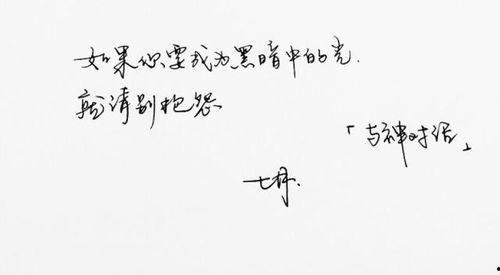 如果你要成为黑暗中的光.
就请别抱怨
「与神对话」